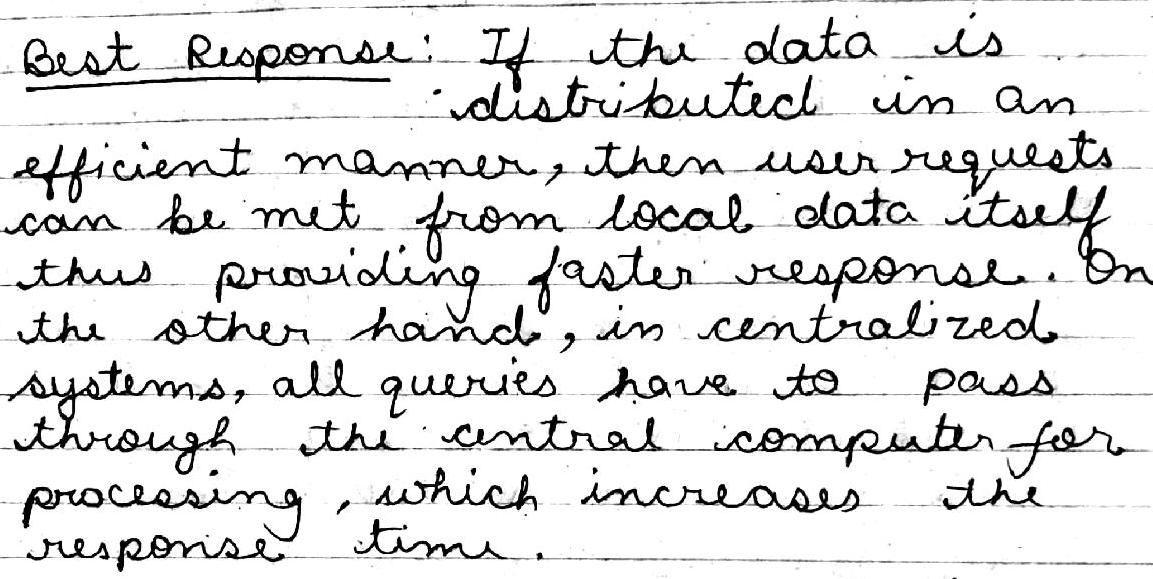 Best Response: If the data is
distributed in an
efficient manner, then user requests
can be met from local data itself
thus providing faster response. On
the other hand, in centralized
systems, all queries have to pass
through the central computer for
processing, which increases the
response time.